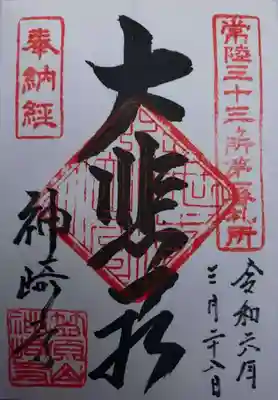 常陸三十三ヶ所第番札所
令和六年
三月二十八日
大悲殿
奉納経
神崎寺